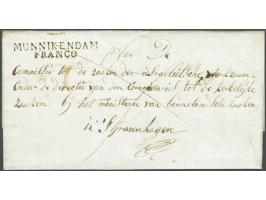 MUNNIKENDAM
FRANCO
Aan De
Commissie tot de zaaken der israelitsche
onder de directie van den Commissaris tot de kerkelijke
zaaken bij het ministerie van binnelandsche zaaken
in 's Gravenhagen